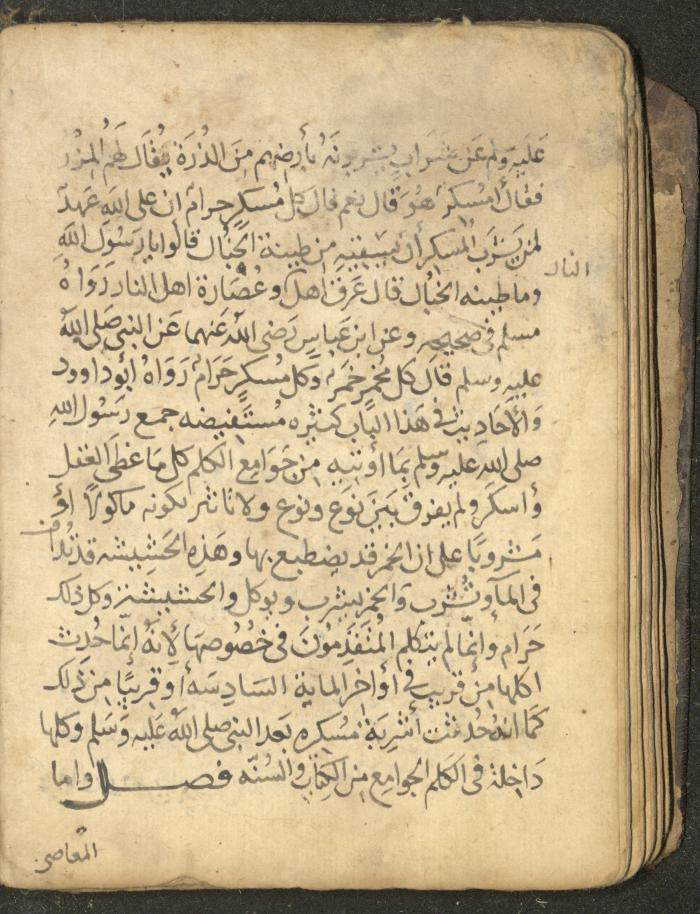 عَلَيهِ وَلم عَن شَرَابٍ يشربونَهُ بأرضِهم مِنَ الذُرَة يُقَال لهَمُ المِزرُ
فقال أمُسكِرٌ هُوَ قال نعم قال كل مُسكرٍ حرامٌ ان على الله عَهدً
لمن يَشرَب المُسكر أن يَسقِيَهِ من طينة الخَبَال قالوا يا رَسُولَ اللهِ
وما طينه الخبَال قال عَرَق اهل وعُصَارة اهل النار رَوَاهُ
النار
مسلم في صحيحه وعن ابن عَباسٍ رَضي اللهُ عَنهما عَن النبي صَلى اللهُ
عليهِ وسلم قَال كل مُخمِرٍ خَمرٌ وَكل مُسكرٍ حَرَامٌ رَوَاهُ ابُو داوود
وَالأحَاديث في هَذا البَاب كثيره مُستَفيضه جمع رَسُول اللهِ
صلى الله عليه وسلم بمَا اوُتيه مِن جَوَامِع الكلم كل مَا غطى العَقل
وأسكَرَ ولم يفرق بَينَ نوَع ونوع ولا تاثير لكونه ماكولًا اوْ
مَشروبًا على ان الخمر قد يصطبع بها وهَذِهِ الحَشِيشه قد تُذاب
في المآ وتُشرب وَالخمر يشرب ويوكل والحشيشة وكل ذلك
حَرَام وإنما لم يتكلم المُتَقَدِمُونَ في خصُوصهَا لأِنهُ إنمّا حُدِث
اكلها مِن قريب في أوَاخر الماية السَادِسَه أو قريبًا مِن ذَلك
كمَا انهُ حُدثت أشرِبَة مُسكره بَعدَ النبي صلى اللهُ عَليهِ وَسَلم وكلها
دَاخلة في الكَلم الجوامِع مِن الكِتاب والسُنّه فصل واما
المعَاصي